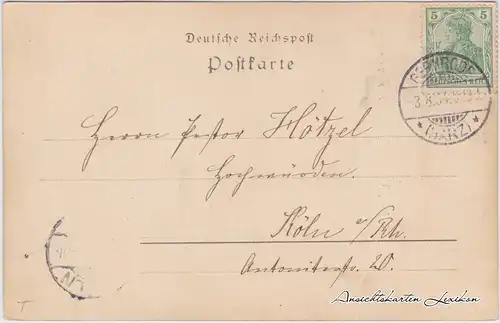 Deutsche Reichspost
Postkarte
5 5
(HARZ)
Herrn Pastor Hötzel
Hochwürden
Köln a/Rh.
Antoniterstr. 20.
Ansichtskarten Lexikon